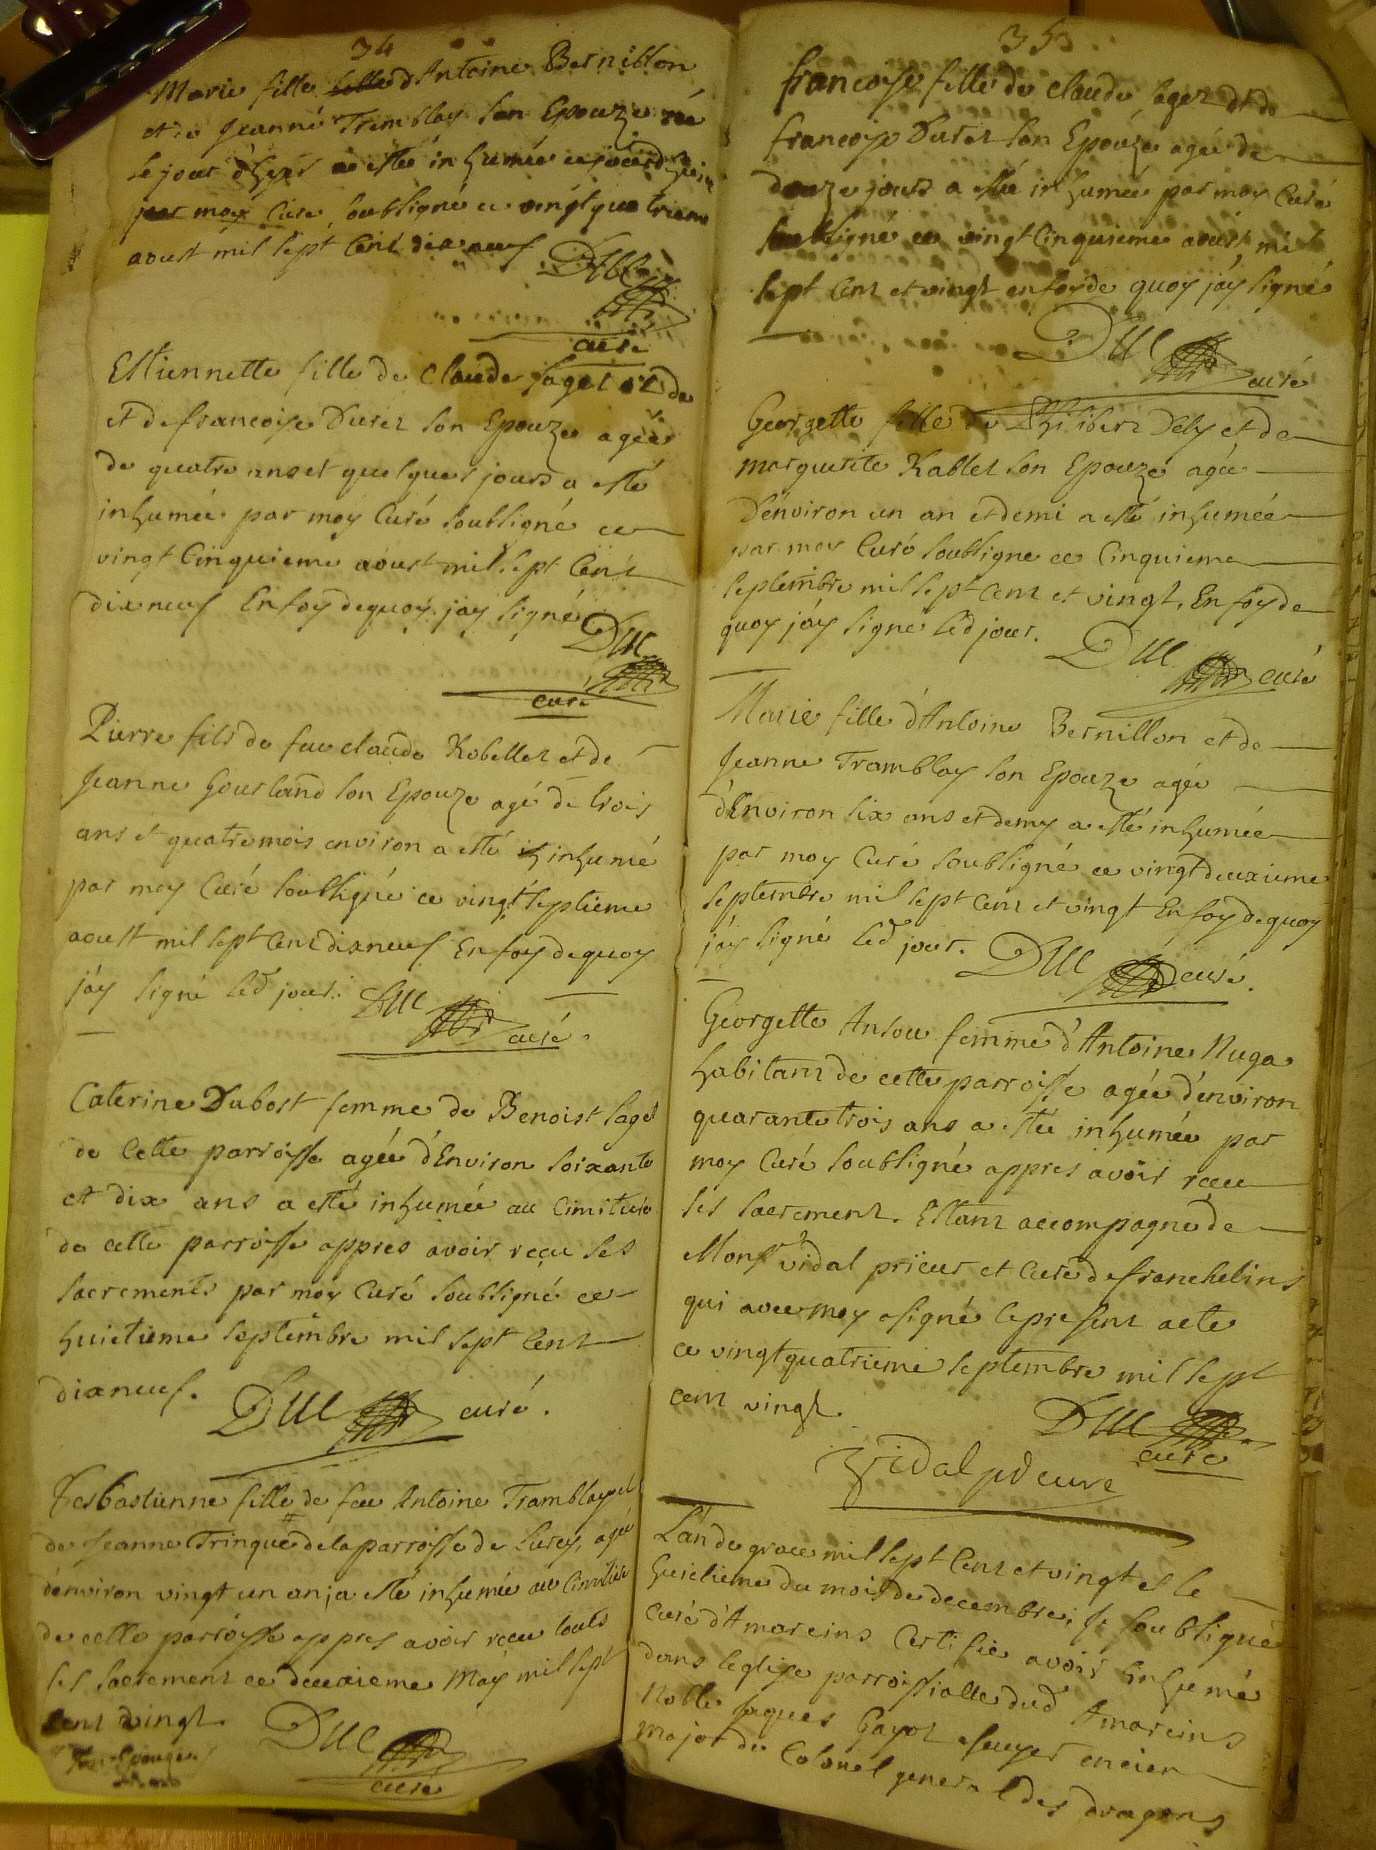 34
Marie fille d'Antoine Bernillon
et de Jeanne Tramblay son Epouze née
le jour d'hyer a esté inhumée ce jourdhuy
par moy Curé soubsigné ce vingt quatrieme
aoust mil sept Cent dix neuf Duc
curé
Estiennette fille de Claude sages et de
et de francoise Duret son Epouze agée
de quatre ans et quelques jours a esté
inhumée par moy Curé soubsigné ce
vingt Cinquieme aoust mil sept Cent
dix neuf En foy de quoy jay signé
Duc
curé
Pierre fils de feu claude Robellet et de
Jeanne Gourland son Epouze agé de trois
ans et quatre mois environ a esté inhumé
par moy Curé soubsigné ce vingt septieme
aoust mil sept Cent dix neuf En foy de quoy
j'ay signé led jour. Duc curé.
Caterine Dubost femme de Benoist sages
de Cette parroisse agée d'Environ soixante
et dix ans a esté inhumée au Cimitiere
de cette parroisse appres avoir reçu ses
sacrements par moy Curé soubsigné ce
huictieme septembre mil sept Cent
dix neuf. Duc curé.
Sesbastienne fille de feu Antoine Tramblay et
de Jeanne Trinque de la parroisse de Lurcy, agée
d'environ vingt un an a esté inhumée au Cimitiere
de cette parroisse appres avoir receu touts
ses sacrement ce deuxieme May mil sept
Cent vingt Duc
curé
353
francoise fille de claude sages et de
francoise Duret son Epouze agée de
douze jours a esté inhumée par moy Curé
soubsigné ce vingt Cinquieme aoust mil
sept Cent et vingt en foy de quoy j'ay signé
Duc curé
Georgette fille de Philibert Dely et de
marguerite Rablet son Epouze agée
d'environ un an et demi a esté inhumée
par moy Curé soubsigné ce Cinquieme
septembre mil sept Cent et vingt, En foy de
quoy j'ay signé led jour. Duc curé
Marie fille d'Antoine Bernillon et de
Jeanne Tramblay son Epouze agée
d'Environ six ans et demy a esté inhumée
par moy Curé soubsigné ce vingt deuxieme
septembre mil sept Cent et vingt En foy de quoy
j'ay signé led jour. Duc curé.
Georgette Ansou femme d'Antoine Nuga
habitant de cette parroisse agée d'environ
quarante trois ans a esté inhumée par
moy Curé soubsigné appres avoir receu
ses sacrement. Estant accompagné de
Monsr vidal prieur et Curé de franchelins
qui avec moy a signé le present acte
ce vingt quatrieme septembre mil sept
cent vingt. Duc
curé
Vidal pr curé
L'an de grace mil sept Cent et vingt et le
huictieme du mois de decembre, je soubsigné
Curé d'Amareins Certifie avoir Inhumé
dans leglise parroissialle dud Amareins
Noble Jaques Gayot escuyer encien
major du Colonel general des dragons